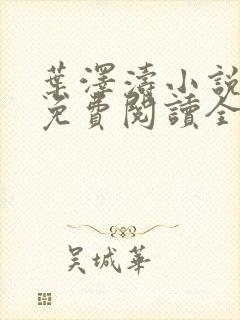 葉澤濤小說
免費閱讀全
吳城華